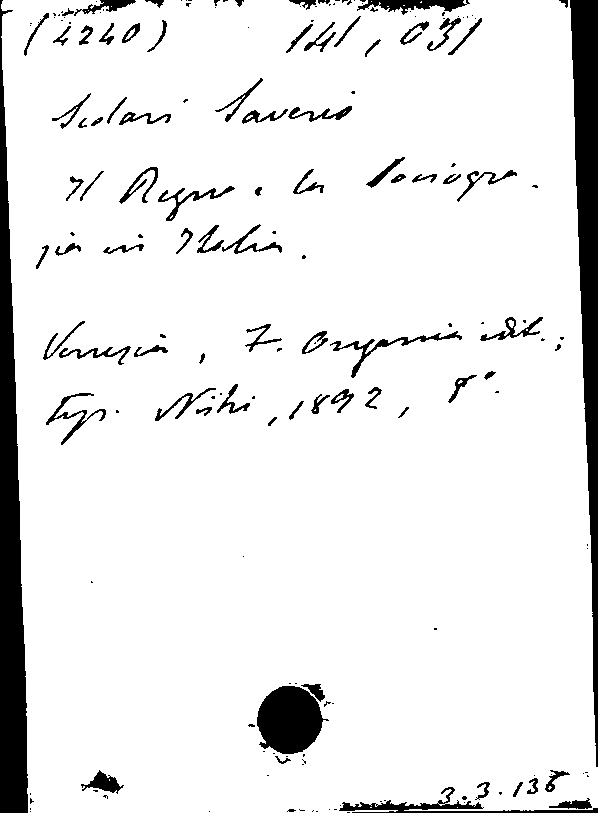 (4240) 141,031
Scolari Saverio
Il Regno e la Sociogra-
fia in Italia.
Venezia, F. Ongania edit.;
typ. Nodari, 1892, 8°.
3.3.136